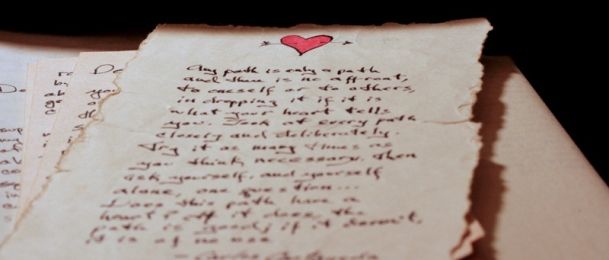 Any path is only a path
and there is no affront,
to oneself or to others,
in dropping it if it is
what your heart tells
you. Look at every path
closely and deliberately.
Try it as many times as
you think necessary. Then
ask yourself, and yourself
alone, one question...
Does this path have a
heart? If it does, the
path is good; if it doesn't,
it is of no use
— Carlos Castaneda